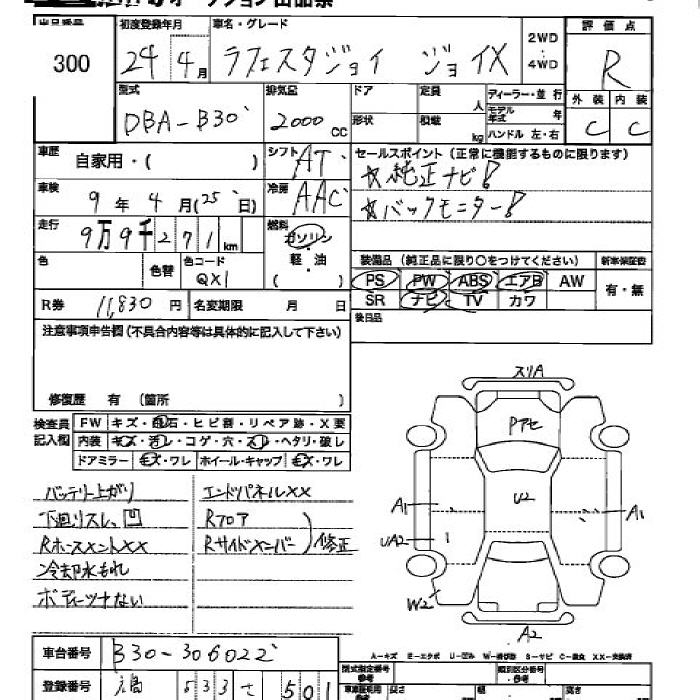 オークション出品票
出品番号 初度登録年月 車名・グレード 2WD・4WD 評価点
300 24年4月 ラフェスタジョイ ジョイX R
型式 排気量 ドア 定員 人 ディーラー・並行 外装 内装
DBA-B30 2000 CC 形状 積載 kg モデル年式 年 ハンドル 左・右 C C
車歴 自家用・( ) シフト AT セールスポイント(正常に機能するものに限ります)
☆純正ナビ!
車検 9年4月(25日) 冷房 AAC ☆バックモニター!
走行 9万9千271km 燃料 ガソリン・軽油 ( )
色 色替 色コード QX1 装備品 (純正品に限り○をつけてください) 新車保証書
PS PW ABS エアB AW 有・無
SR ナビ TV カワ
R券 11,830円 名変期限 月 日 後日品
注意事項申告欄(不具合内容等は具体的に記入して下さい)
修復歴 有 (箇所 )
検査員記入欄 FW キズ・飛石・ヒビ割・リペア跡・X要
内装 キズ・汚レ・コゲ・穴・スレ・ヘタリ・破レ
ドアミラー キズ・ワレ ホイール・キャップ キズ・ワレ
バッテリー上がり エンドパネルXX
下廻りスレ、凹 Rフロア
RホースメントXX Rサイドメンバー 修正
冷却水もれ
ボディーツヤない
スリA
Pアセ
U2
A1 A1
UA2
W2
A2
A-キズ E-エクボ U-凹み W-波状 S-サビ C-腐食 XX-交換済
車台番号 B30-306022
登録番号 533 さ 501
型式指定番号 類別区分番号
長さ 幅 高さ